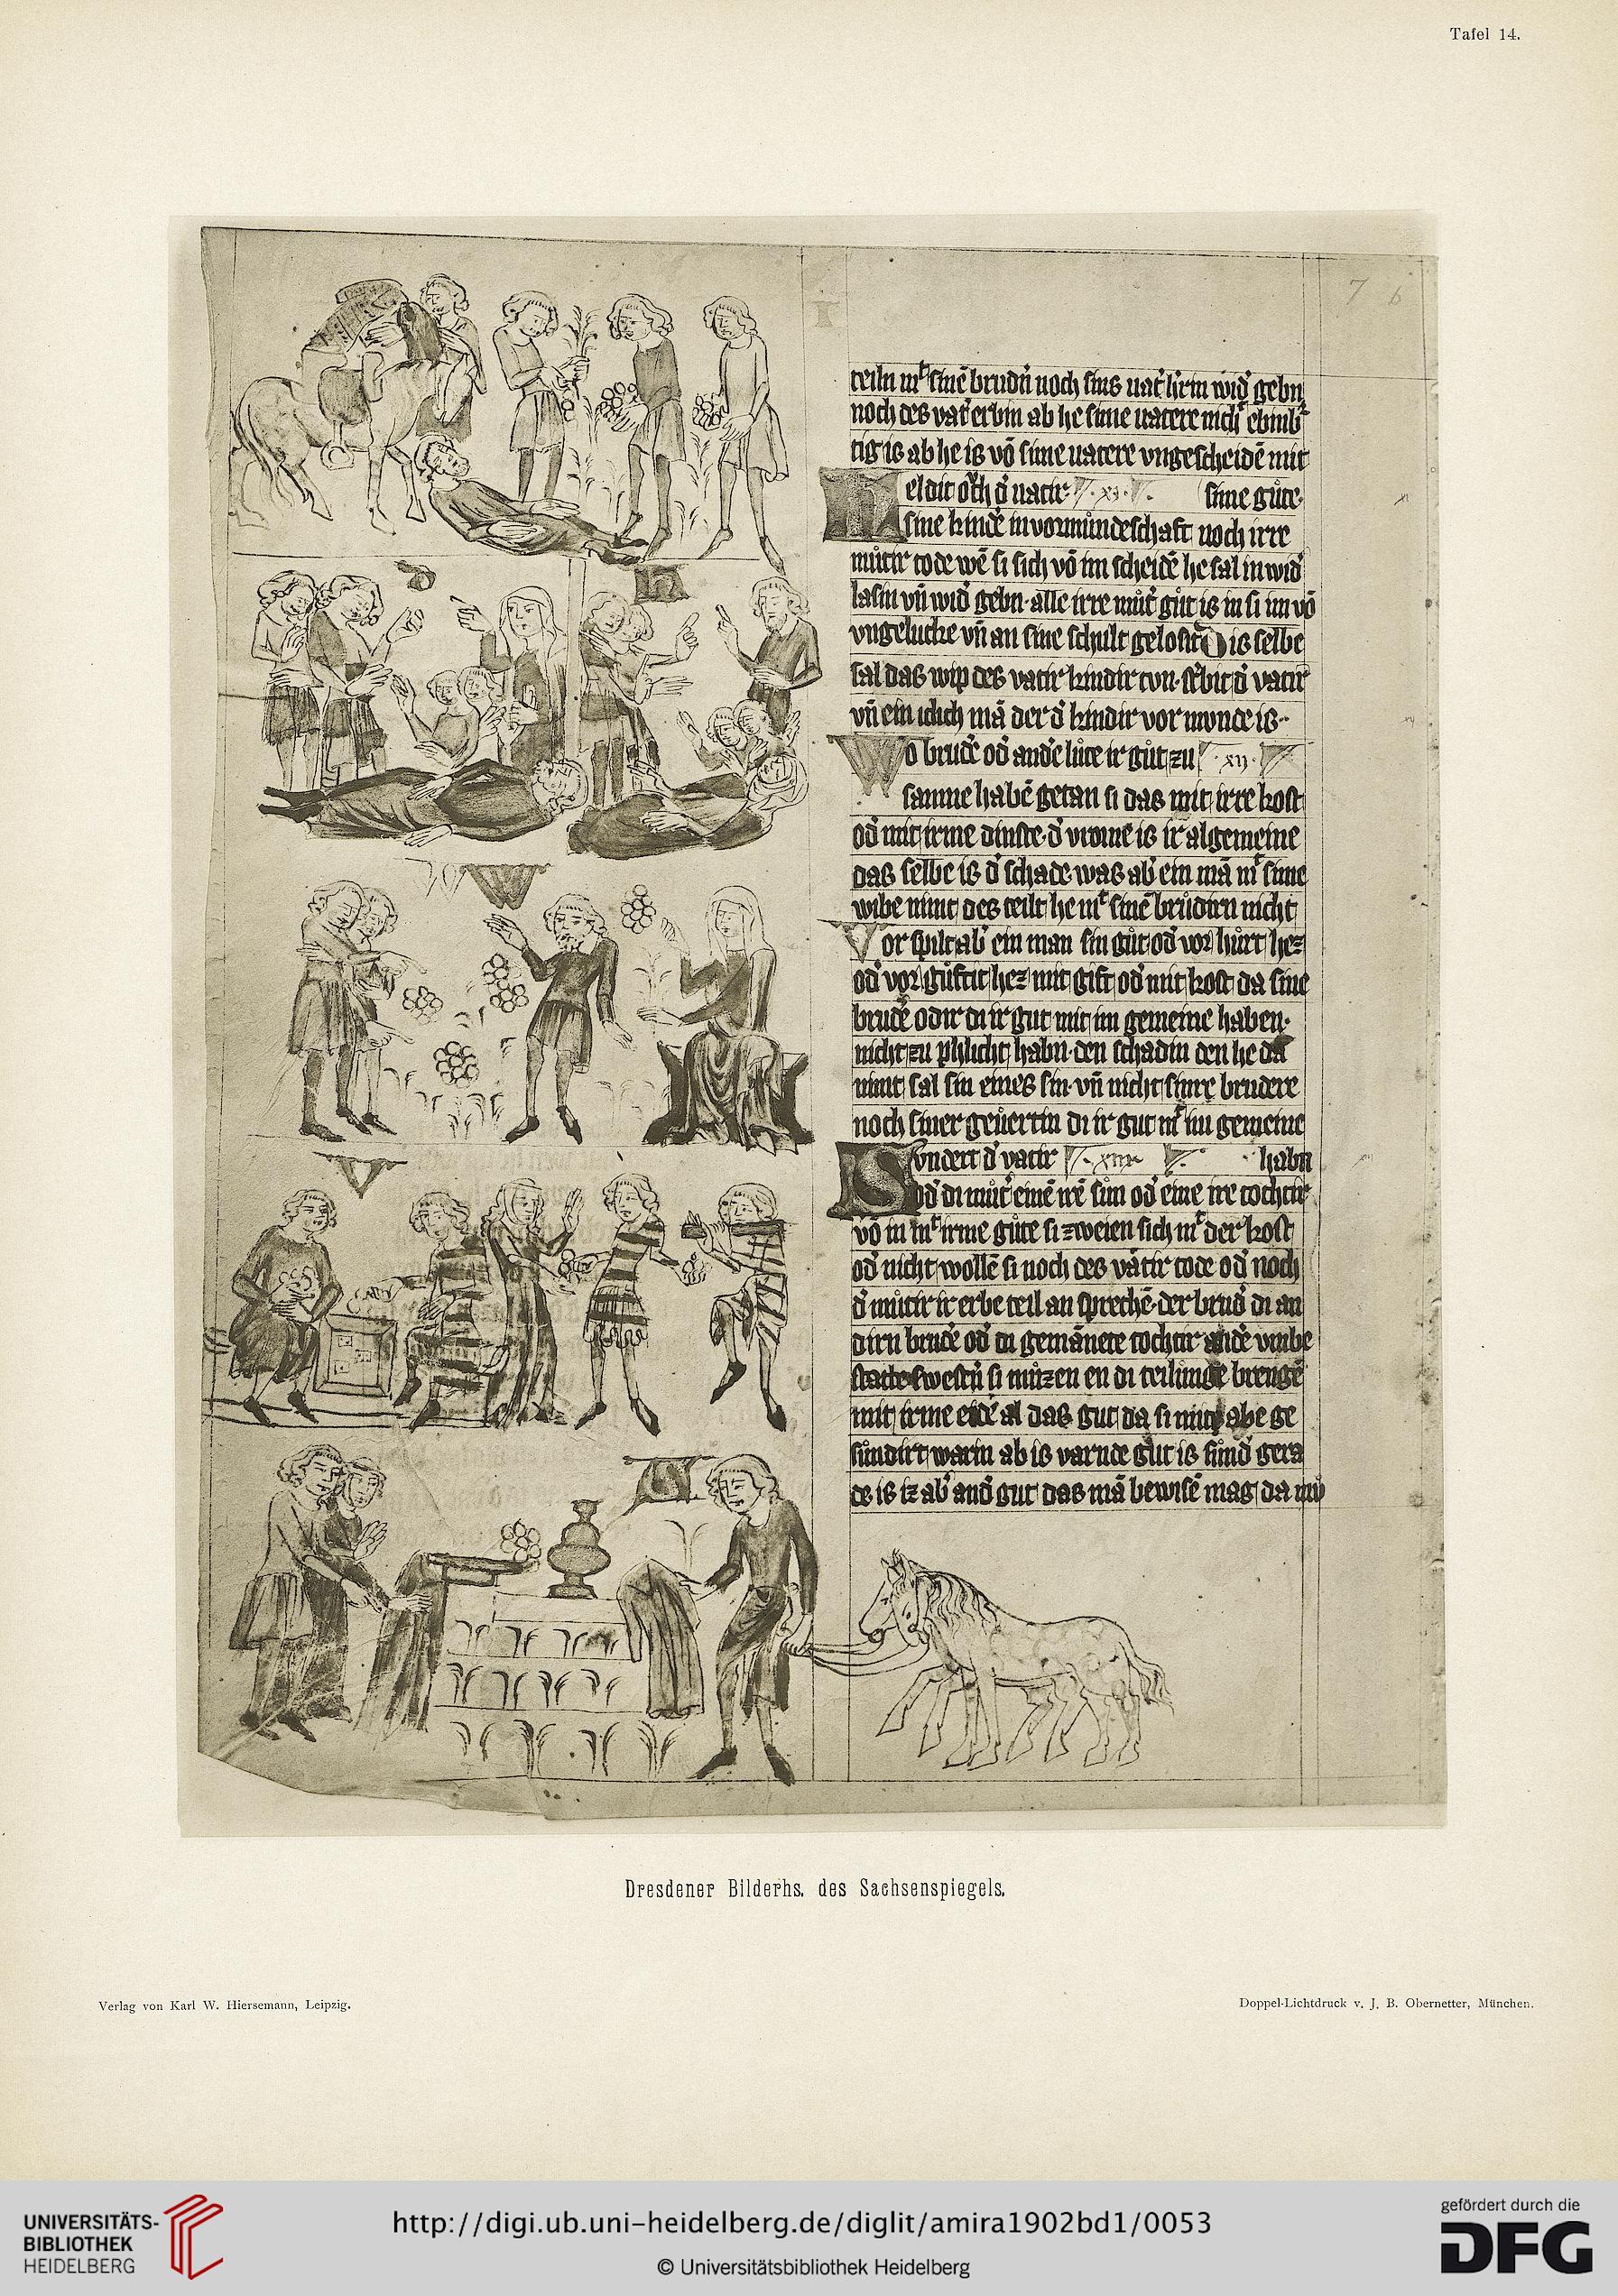 Tafel 14.
7 b
teiln mt sinē brudn̄ noch sins vat' hˀrin wid' gebn
noch des vat' erbin ab he sime vatere nicht ebinb'
tig is ab he is vō sime vatere vngescheidē mit
heldit och d' vatir · xi · sime gůte·
sine kindē in vormůndeschaft noch irre
můtir tode wē si sich vō im scheidē he sal in wid'
lasin vn̄ wid' gebn· alle irre můt' gůt is in si im vō
vngelucke vn̄ an sine schult gelosit Dis selbe
sal das wip des vatir kindir tun· stˀbit d' vatir
vn̄ ein iclich mā der d' kindir vormonde is··
Wo brud'e od' and'e lůte ir gůt zu · xij ·
samne habē getan si das mit irre kost
od' mit irme dinste· d' vrome is ir algemeine
das selbe is d' schade was ab' ein mā mt sime
wibe nimt des teilt he mt sinē brůdirn nicht
Vorspilt ab' ein man sin gůt od' vor hůrt hez
od' vorgůftit hez mit gift od' mit kost da sine
brud'e odir di ir gut mit im gemeine haben·
nicht zu phlicht habn· den schadin den he da
nimt sal sin eines sin· vn̄ nicht sinre brudere
noch siner geuertin di ir gut mt im gemeine
Sundert d' vatir · xiii · habn
od' di můt' einē irē sun od' eine ire tochtir
vō in mt irme gůte si zweien sich mt der kost
od' nicht wollē si noch des vatir tode od' noch
d' můtir ir erbeteil an sprechē· der brud' di an
dirn brud'e od' di gemānete tochtir and'e vmbe
statte swestn̄ si můzen en di teilunge brengē
mit irme eidē al das gut da si mite abe ge
sůndirt warin ab is varnde gut is sund' gera
de is iz ab' and' gut das mā bewisē mag da mů
Dresdener Bilderhs. des Sachsenspiegels.
Verlag von Karl W. Hiersemann, Leipzig.
Doppel-Lichtdruck v. J. B. Obernetter, München.
UNIVERSITÄTS-
BIBLIOTHEK
HEIDELBERG
http://digi.ub.uni-heidelberg.de/diglit/amira1902bd1/0053
© Universitätsbibliothek Heidelberg
gefördert durch die
DFG